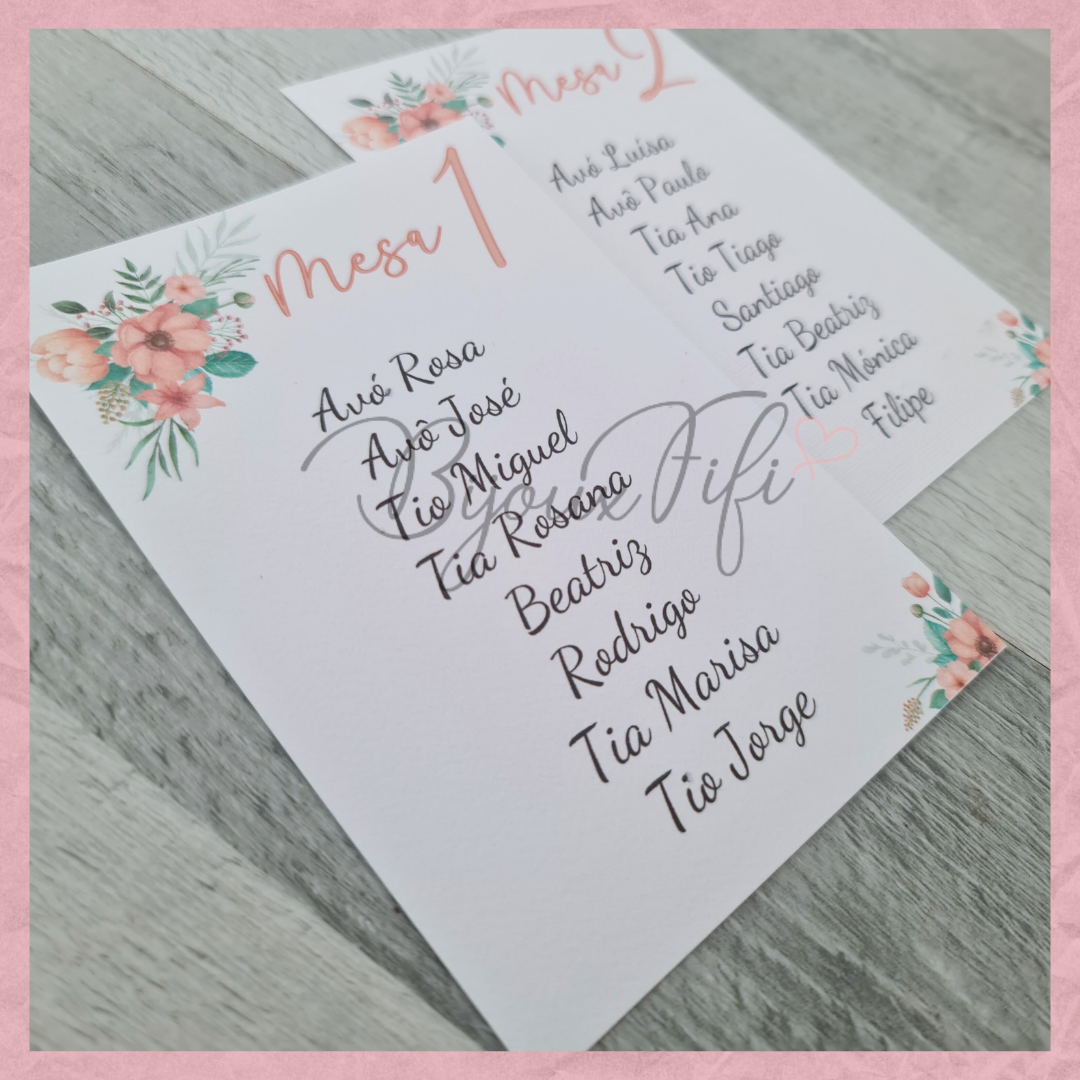 Mesa 1
Avó Rosa
Avô José
Tio Miguel
Tia Rosana
Beatriz
Rodrigo
Tia Marisa
Tio Jorge
Mesa 2
Avó Luísa
Avô Paulo
Tia Ana
Tio Tiago
Santiago
Tia Beatriz
Tia Mónica
Filipe
Bijoux Fifi